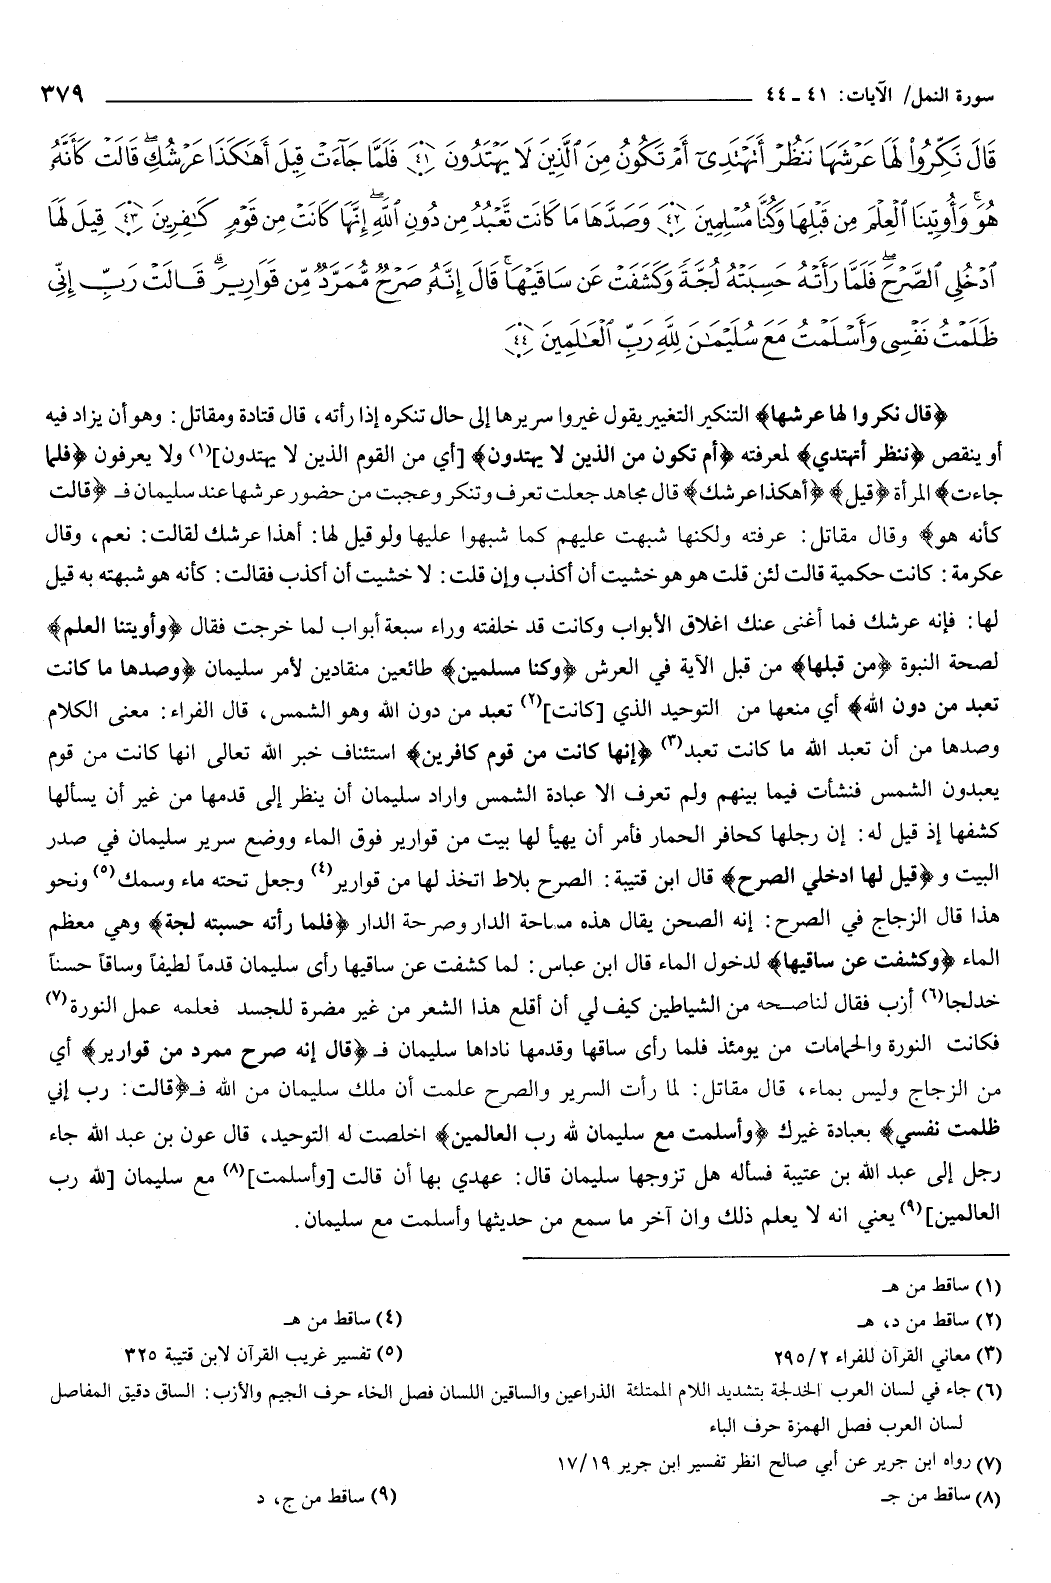 سورة النمل/ الآيات: ٤١ ـ ٤٤ ٣٧٩
قَالَ نَكِّرُواْ لَهَا عَرْشَهَا نَنظُرْ أَتَهْتَدِىٓ أَمْ تَكُونُ مِنَ ٱلَّذِينَ لَا يَهْتَدُونَ ﴿٤١﴾ فَلَمَّا جَآءَتْ قِيلَ أَهَٰكَذَا عَرْشُكِ ۖ قَالَتْ كَأَنَّهُۥ
هُوَ ۚ وَأُوتِينَا ٱلْعِلْمَ مِن قَبْلِهَا وَكُنَّا مُسْلِمِينَ ﴿٤٢﴾ وَصَدَّهَا مَا كَانَت تَّعْبُدُ مِن دُونِ ٱللَّهِ ۖ إِنَّهَا كَانَتْ مِن قَوْمٍ كَٰفِرِينَ ﴿٤٣﴾ قِيلَ لَهَا
ٱدْخُلِى ٱلصَّرْحَ ۖ فَلَمَّا رَأَتْهُ حَسِبَتْهُ لُجَّةً وَكَشَفَتْ عَن سَاقَيْهَا ۚ قَالَ إِنَّهُۥ صَرْحٌ مُّمَرَّدٌ مِّن قَوَارِيرَ ۗ قَالَتْ رَبِّ إِنِّى
ظَلَمْتُ نَفْسِى وَأَسْلَمْتُ مَعَ سُلَيْمَٰنَ لِلَّهِ رَبِّ ٱلْعَٰلَمِينَ ﴿٤٤﴾
﴿قال نكروا لها عرشها﴾ التنكير التغيير يقول غيروا سريرها إلى حال تنكره إذا رأته، قال قتادة ومقاتل: وهو أن يزاد فيه
أو ينقص ﴿ننظر أتهتدي﴾ لمعرفته ﴿أم تكون من الذين لا يهتدون﴾ [أي من القوم الذين لا يهتدون](١) ولا يعرفون ﴿فلما
جاءت﴾ المرأة ﴿قيل﴾ ﴿أهكذا عرشك﴾ قال مجاهد جعلت تعرف وتنكر وعجبت من حضور عرشها عند سليمان فـ ﴿قالت
كأنه هو﴾ وقال مقاتل: عرفته ولكنها شبهت عليهم كما شبهوا عليها ولو قيل لها: أهذا عرشك لقالت: نعم، وقال
عكرمة: كانت حكمية قالت لئن قلت هو هو خشيت أن أكذب وإن قلت: لا خشيت أن أكذب فقالت: كأنه هو شبهته به قيل
لها: فإنه عرشك فما أغنى عنك اغلاق الأبواب وكانت قد خلفته وراء سبعة أبواب لما خرجت فقال ﴿وأويتنا العلم﴾
لصحة النبوة ﴿من قبلها﴾ من قبل الآية في العرش ﴿وكنا مسلمين﴾ طائعين منقادين لأمر سليمان ﴿وصدها ما كانت
تعبد من دون الله﴾ أي منعها من التوحيد الذي [كانت](٢) تعبد من دون الله وهو الشمس، قال الفراء: معنى الكلام
وصدها من أن تعبد الله ما كانت تعبد(٣) ﴿إنها كانت من قوم كافرين﴾ استئناف خبر الله تعالى انها كانت من قوم
يعبدون الشمس فنشأت فيما بينهم ولم تعرف الا عبادة الشمس واراد سليمان أن ينظر إلى قدمها من غير أن يسألها
كشفها إذ قيل له: إن رجلها كحافر الحمار فأمر أن يهيأ لها بيت من قوارير فوق الماء ووضع سرير سليمان في صدر
البيت و ﴿قيل لها ادخلي الصرح﴾ قال ابن قتيبة: الصرح بلاط اتخذ لها من قوارير(٤) وجعل تحته ماء وسمك(٥) ونحو
هذا قال الزجاج في الصرح: إنه الصحن يقال هذه مساحة الدار وصرحة الدار ﴿فلما رأته حسبته لجة﴾ وهي معظم
الماء ﴿وكشفت عن ساقيها﴾ لدخول الماء قال ابن عباس: لما كشفت عن ساقيها رأى سليمان قدماً لطيفاً وساقاً حسناً
خدلجا(٦) أزب فقال لناصحه من الشياطين كيف لي أن أقلع هذا الشعر من غير مضرة للجسد فعلمه عمل النورة(٧)
فكانت النورة والحمامات من يومئذ فلما رأى ساقها وقدمها ناداها سليمان فـ ﴿قال إنه صرح ممرد من قوارير﴾ أي
من الزجاج وليس بماء، قال مقاتل: لما رأت السرير والصرح علمت أن ملك سليمان من الله فـ﴿قالت: رب إني
ظلمت نفسي﴾ بعبادة غيرك ﴿وأسلمت مع سليمان لله رب العالمين﴾ اخلصت له التوحيد، قال عون بن عبد الله جاء
رجل إلى عبد الله بن عتيبة فسأله هل تزوجها سليمان قال: عهدي بها أن قالت [وأسلمت](٨) مع سليمان [لله رب
العالمين](٩) يعني انه لا يعلم ذلك وان آخر ما سمع من حديثها وأسلمت مع سليمان.
(١) ساقط من هـ
(٢) ساقط من د، هـ (٤) ساقط من هـ
(٣) معاني القرآن للفراء ٢/ ٢٩٥ (٥) تفسير غريب القرآن لابن قتيبة ٣٢٥
(٦) جاء في لسان العرب الخدلجة بتشديد اللام الممتلئة الذراعين والساقين اللسان فصل الخاء حرف الجيم والأزب: الساق دقيق المفاصل
لسان العرب فصل الهمزة حرف الباء
(٧) رواه ابن جرير عن أبي صالح انظر تفسير ابن جرير ١٩/ ١٧
(٨) ساقط من جـ (٩) ساقط من ج، د